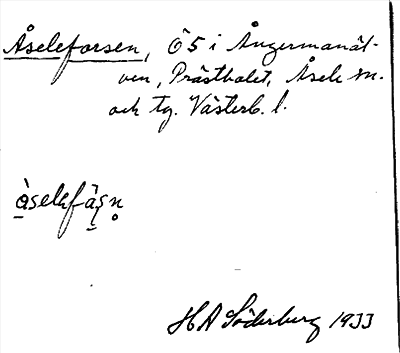 Åseleforsen, Ö5 i Ångermanäl-
ven, Prästbolet, Åsele sn.
och tg. Västerb. l.
åselefåṣn̥
H A Söderberg 1933